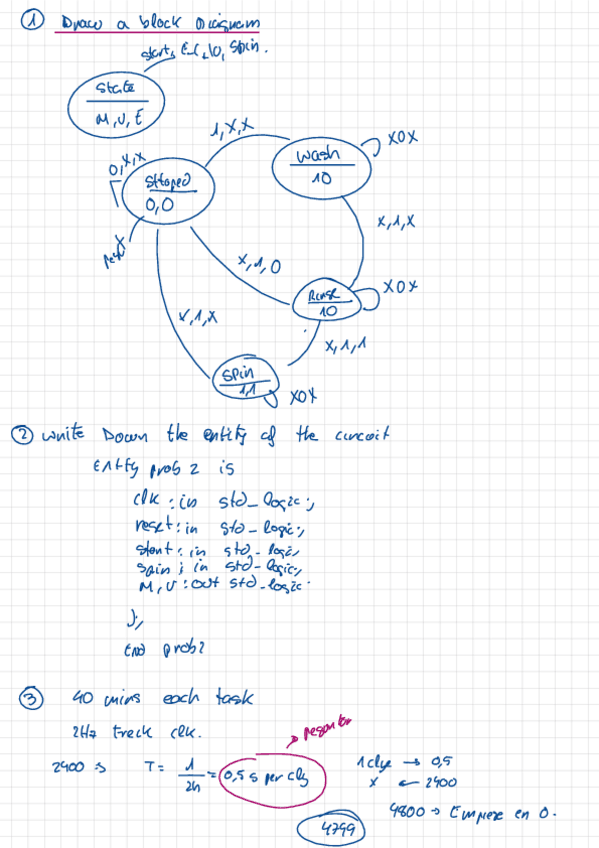 ① Draw a block Diagram
start, E-C, 10, spin.
State
M, V, E
1,X,X
XOX
Wash
10
0,X,X
Sttoped
0,0
X,1,X
X,1,0
XOX
Rinse
10
X,1,X
X,1,1
Spin
1,1
XOX
② Write Down the entity of the circuit
Entity prob 2 is
clk : in std_logic;
reset : in std_logic;
start : in std_logic;
spin : in std_logic;
M, V : out std_logic;
);
End prob2
③ 40 mins each task
2Hz track clk.
2400 s T = 1/2h = 0,5 s per clg
1 clge → 0,5
x ← 2400
4800 → Empeze en 0.
4799